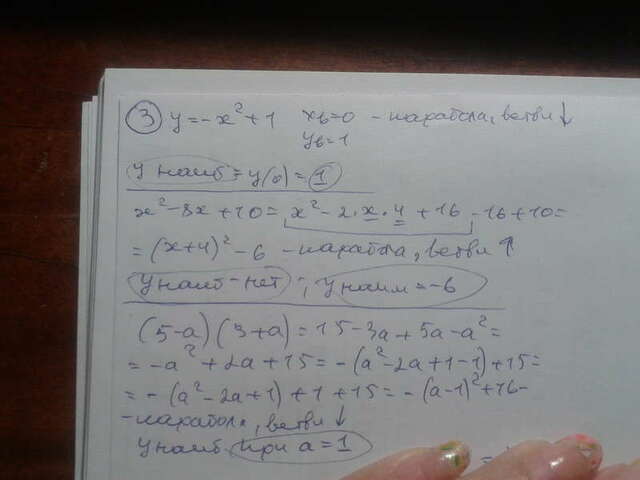 ③ y=-x²+1 xв=0 - парабола, ветви ↓
yв=1
y наиб = y(0) = 1
x²-8x+10= x²-2·x·4+16-16+10=
=(x+4)²-6 - парабола, ветви ↑
y наиб - нет ; y наим = -6
(5-a)(3+a)=15-3a+5a-a²=
=-a²+2a+15=-(a²-2a+1-1)+15=
=-(a²-2a+1)+1+15=-(a-1)²+16-
-парабола, ветви ↓
y наиб. при a=1